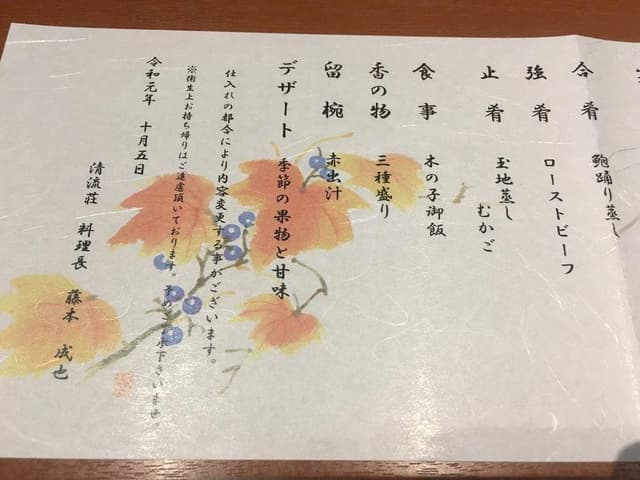 合肴 鮑踊り蒸し
強肴 ローストビーフ
止肴 玉地蒸し
むかご
食事 木の子御飯
香の物 三種盛り
留椀 赤出汁
デザート 季節の果物と甘味
仕入れの都合により内容変更する事がございます。
※衛生上お持ち帰りはご遠慮頂いております。
令和元年 十月五日
清流荘 料理長 藤本 成也